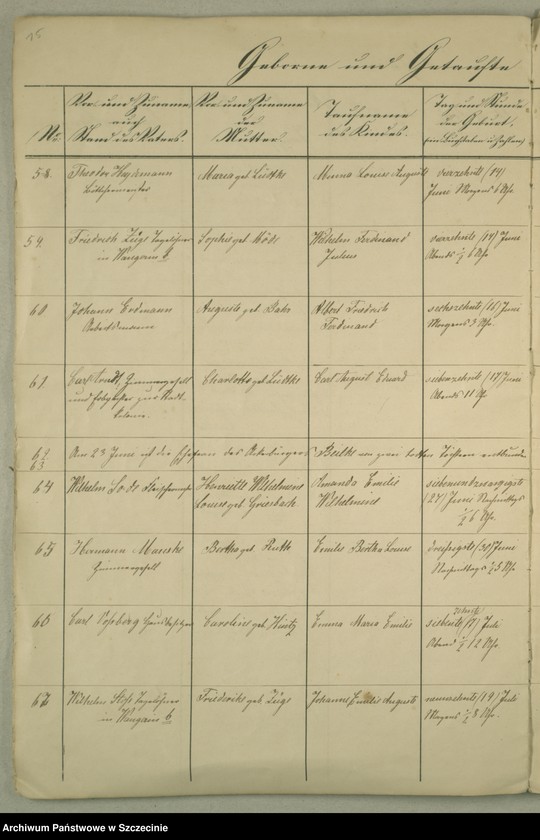 Geborne und Getaufte
Nr.
Vor und Zuname
auch
Stand des Vaters.
Vor und Zuname
der
Mutter.
Taufname
des Kindes.
Tag und Stunde
der Geburt.
58.
Theodor
Maria geb. Lüdtke
Minna Louise Auguste
vierzehnte (14)
Juni Morgens 6 Uhr.
59.
Friedrich Zügs Tagelöhner
in Wangerin b
Sophie geb.
Wilhelm Ferdinand
Julius
vierzehnte (14) Juni
Abends ½ 6 Uhr.
60.
Johann Erdmann
Arbeitsmann
Auguste geb. Bahr
Albert Friedrich
Ferdinand
sechszehnte (16) Juni
Morgens 3 Uhr.
61.
Carl Arndt, Zimmergesell
Charlotte geb. Lüdtke
Carl August Eduard
siebenzehnte (17) Juni
Abends 11 Uhr
62
63
Am 23 Juni ist die Ehefrau des von zwei todten Töchtern entbunden
64
Wilhelm
Henriette Wilhelmine
Louise geb. Griesbach
Amanda Emilie
Wilhelmine
siebenundzwanzigste
(27) Juni Nachmittags
½ 6 Uhr.
65
Hermann
Zimmergesell
Bertha geb.
Emilie Bertha Louise
dreißigste (30) Juni
Nachmittags ½ 5 Uhr.
66
Carl
Caroline geb.
Emma Maria Emilie
siebente (7) Juli
Abend ½ 12 Uhr.
67
Wilhelm Tagelöhner
in Wangerin b
Friederike geb. Zügs
Johanne Emilie Auguste
neunzehnte (19) Juli
Morgens ½ 8 Uhr.
Archiwum Państwowe w Szczecinie